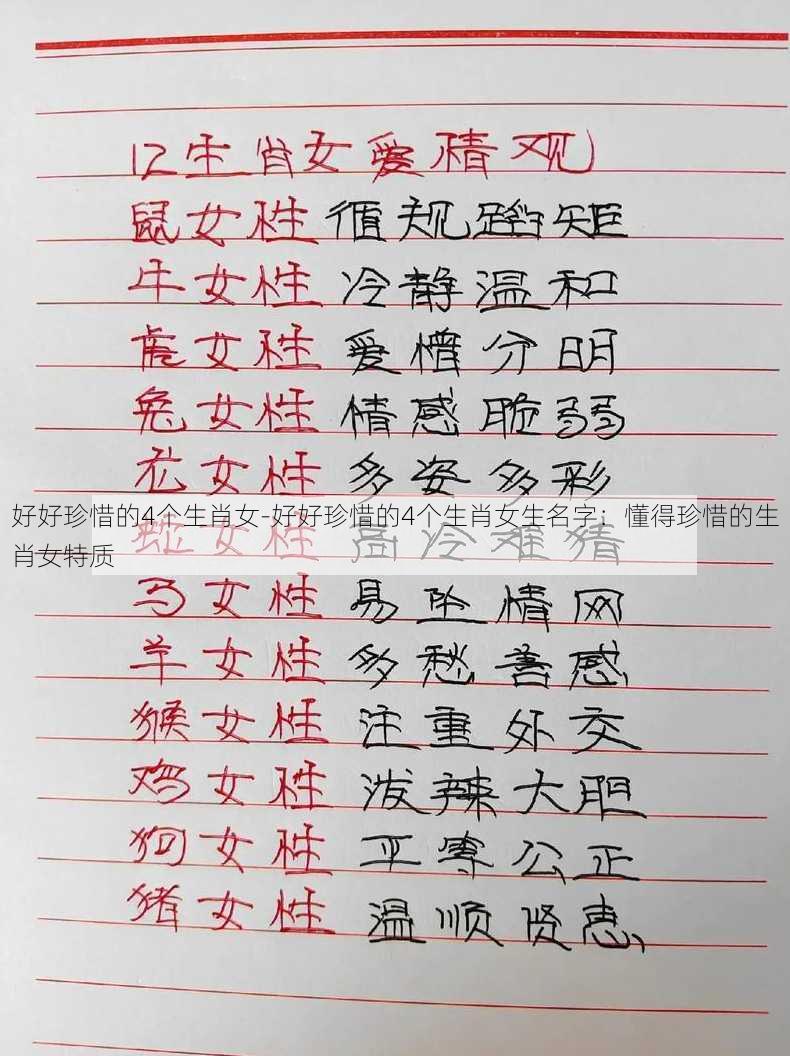 12生肖女爱情观
鼠女性 循规蹈矩
牛女性 冷静温和
虎女性 爱憎分明
兔女性 情感脆弱
龙女性 多姿多彩
好好珍惜的4个生肖女-好好珍惜的4个生肖女生名字：懂得珍惜的生
肖女特质
蛇女性 高冷难猜
马女性 易坠情网
羊女性 多愁善感
猴女性 注重外交
鸡女性 泼辣大胆
狗女性 平等公正
猪女性 温顺贤惠